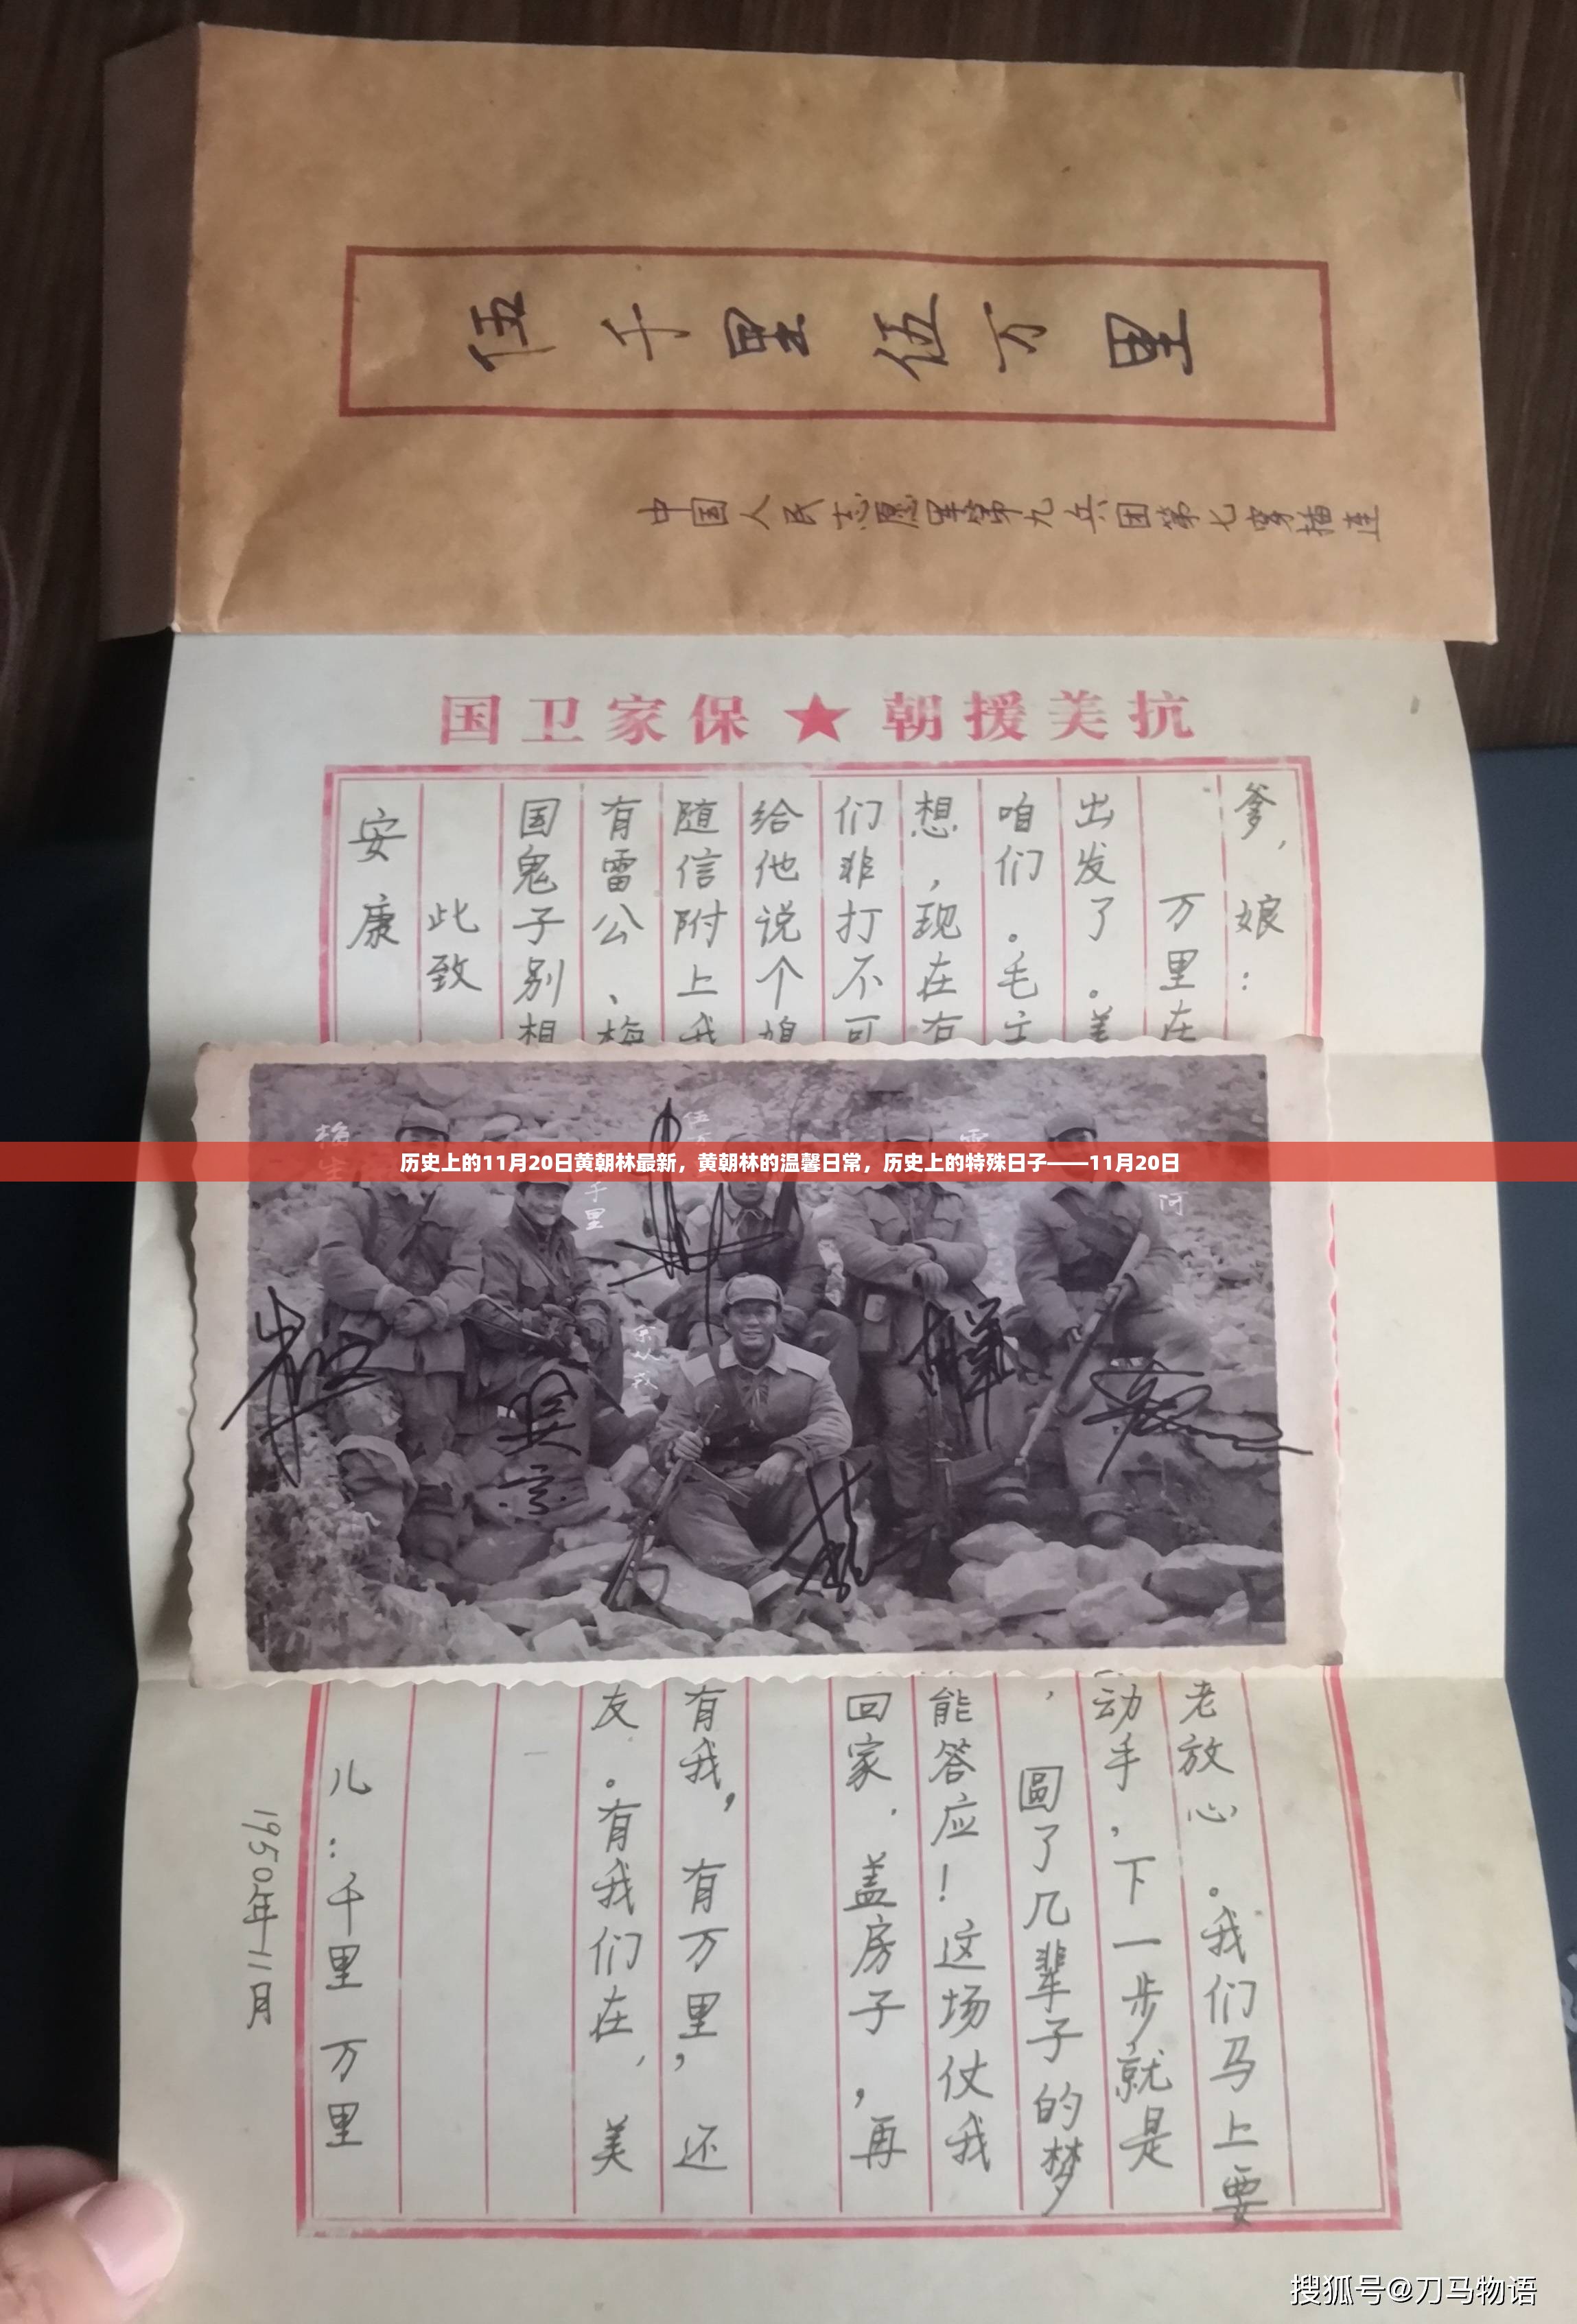 伍千里伍万里
中国人民志愿军第九兵团第七穿插连
抗美援朝★保家卫国
爹，娘：
万里在
老放心。我们马上要
出发了。美
动手，下一步就是
咱们。毛主
，圆了几辈子的梦
想，现在有
能答应！这场仗我
们非打不可
回家.盖房子，再
给他说个媳
随信附上我
有我，有万里，还
有雷公、梅
友.。有我们在，美
国鬼子别想
此致
安康
儿：千里 万里
1950年11月
梅生
千里
伍万
雷
余从戎
河
历史上的11月20日黄朝林最新，黄朝林的温馨日常，历史上的特殊日子——11月20日
搜狐号@刀马物语